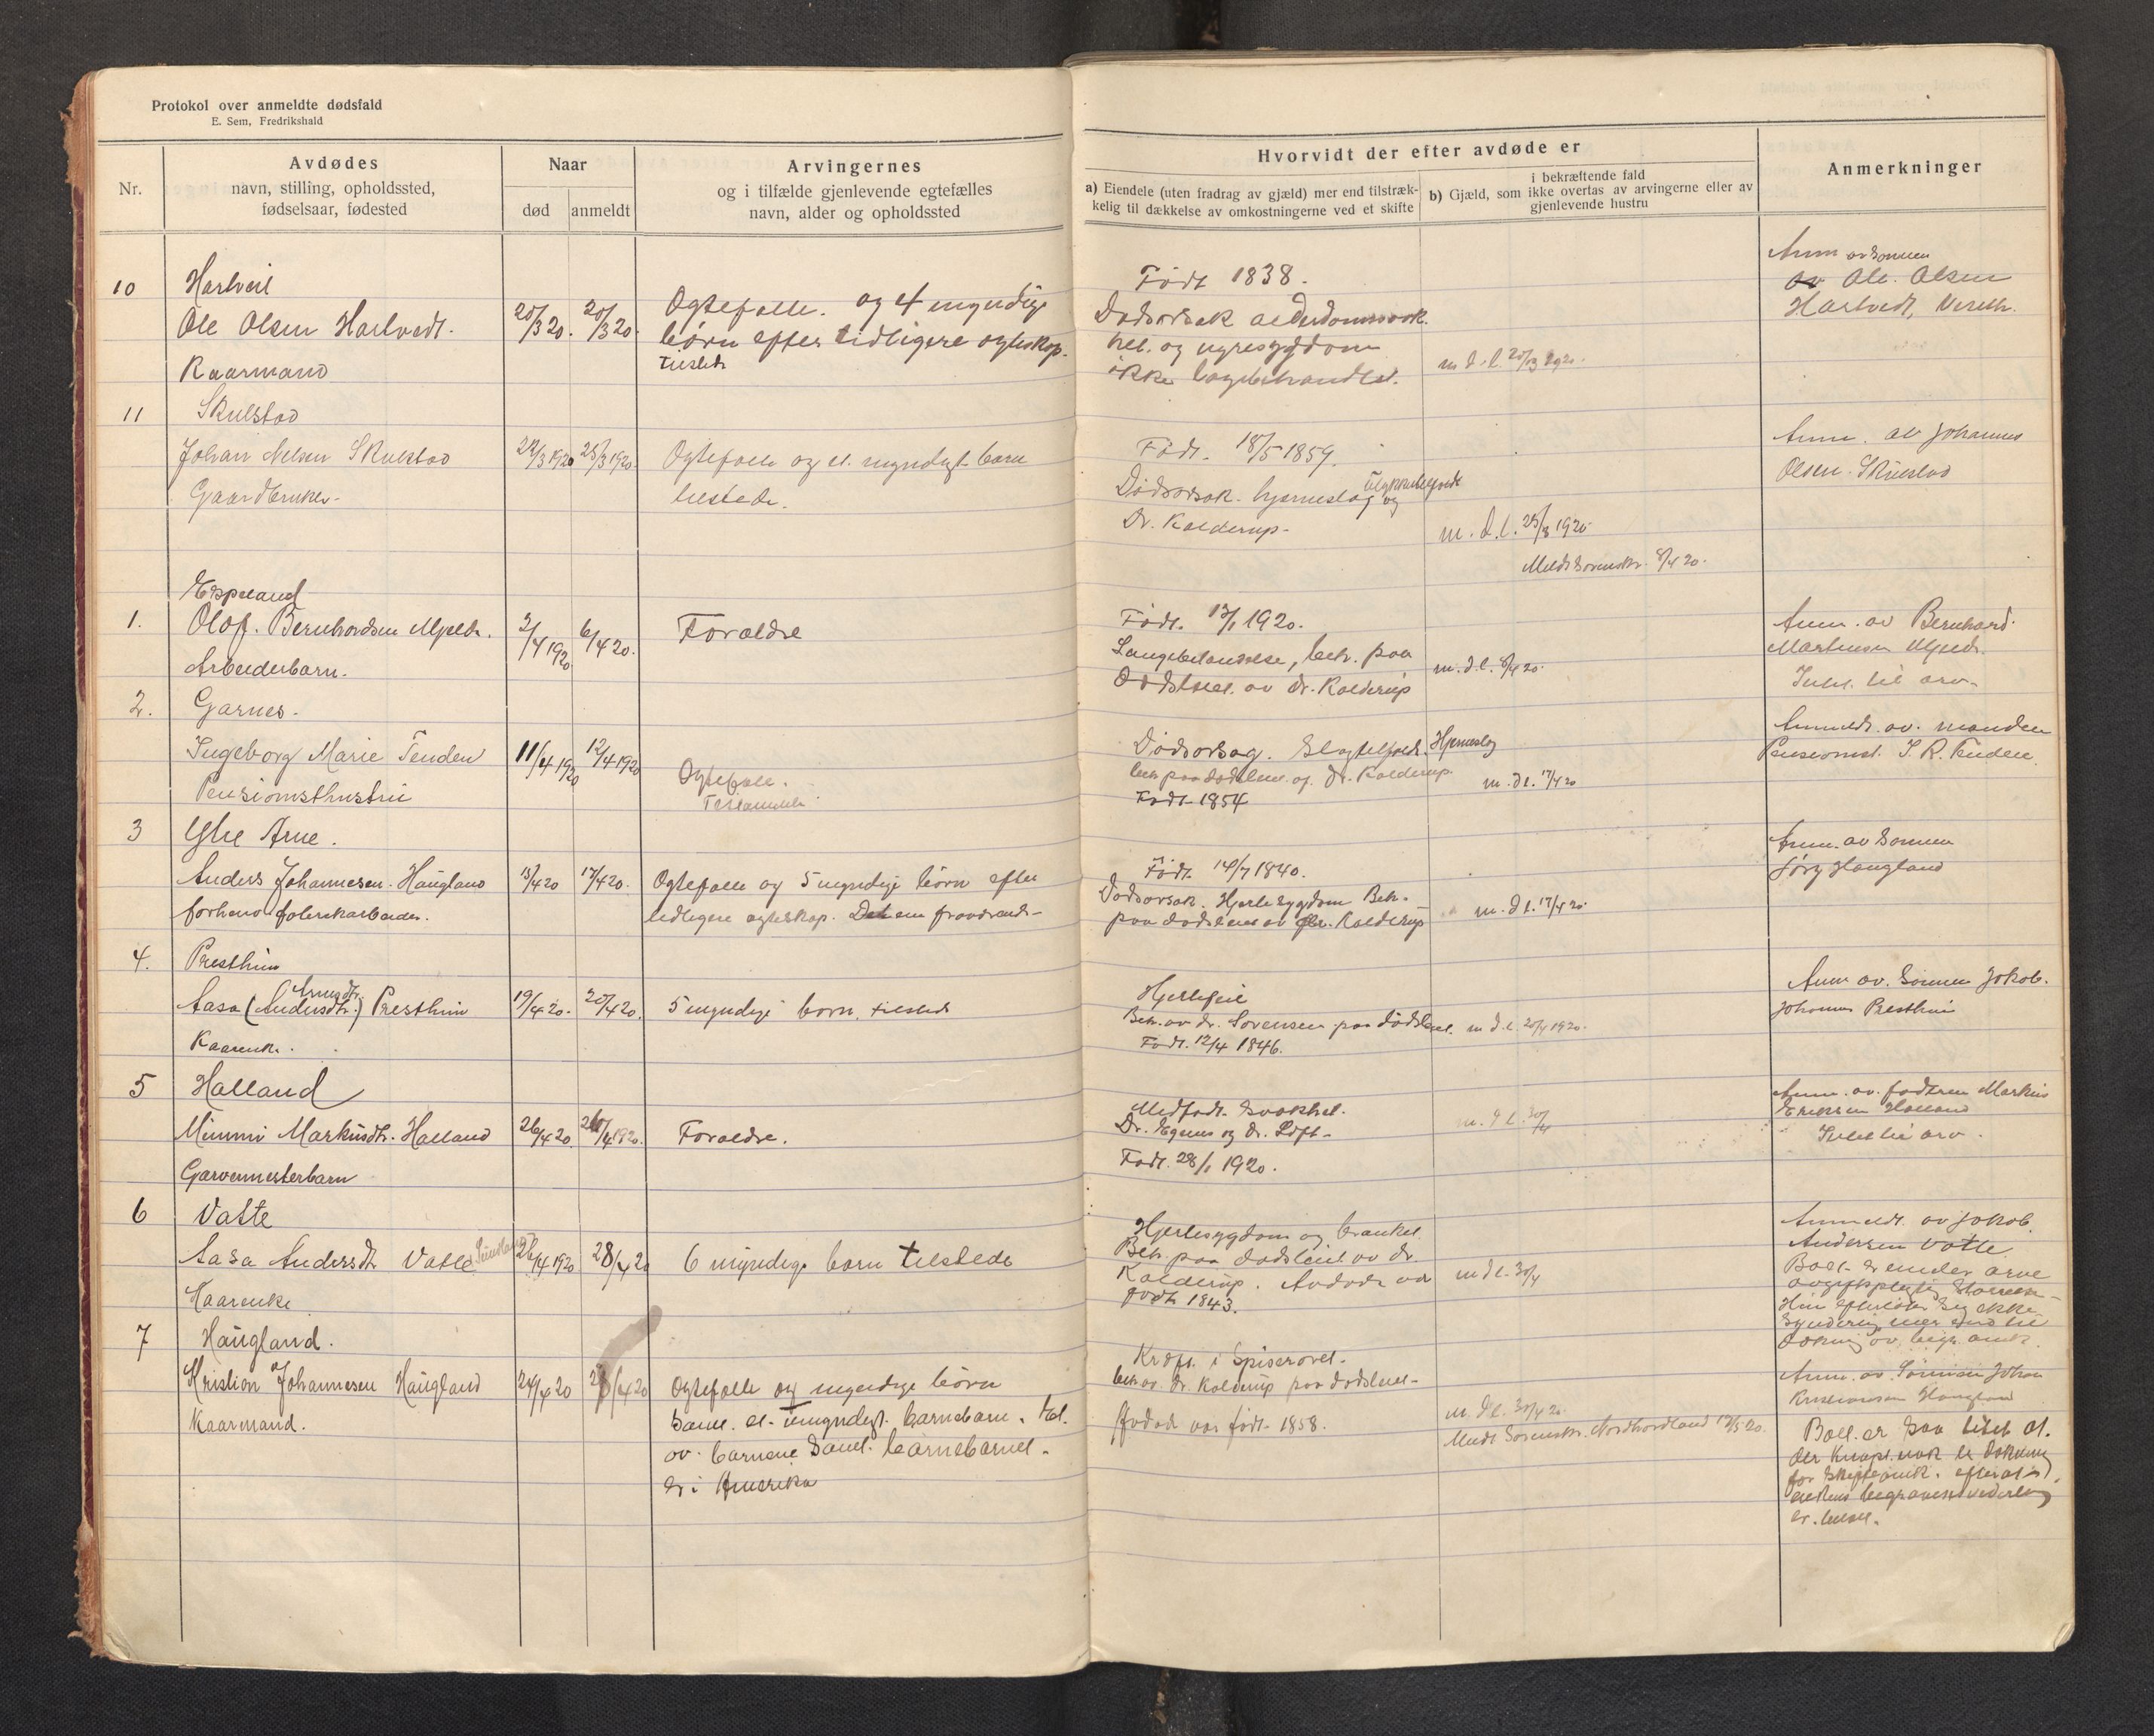 Protokol over anmeldte dødsfald
E. Sem, Fredrikshald
Nr.
Avdødes
navn, stilling, opholdssted,
fødselsaar, fødested
Naar
død
anmeldt
Arvingernes
og i tilfælde gjenlevende egtefælles
navn, alder og opholdssted
Hvorvidt der efter avdøde er
a) Eiendele (uten fradrag av gjæld) mer end tilstræk-
kelig til dækkelse av omkostningerne ved et skifte
i bekræftende fald
b) Gjæld, som ikke overtas av arvingerne eller av
gjenlevende hustru
Anmerkninger
10
Hartveit
Ole Olsen Hartvedt.
Kaarmand
20/3 20.
20/3 20.
Ægtefælle. og 4 myndige
børn efter tidligere ægteskap.
tilstede
Født 1838.
Dødsorsak alderdomssvak
het. og nyresygdom
ikke lægebehandlet.
m. d. l. 20/3 1920.
Anm av sønnen
av Ole Olsen
Hartvedt,
11
Skulstad
Johan Nelsen Skulstad
Gaardbruker
24/3 1920
25/3 1920.
Ægtefælle og et myndigt barn
tilstede.
Født. 18/5 1859.
Dødsorsak. hjerneslag og
Dr. Kalderup.
m. d. l. 25/3 1920
Meldt Sorenskr. 8/4 20.
Anm. av Johannes
Olsen Skulstad
1.
Espeland
Olaf. Bernhardsen Mjelde.
Arbeiderbarn.
3/4 1920
6/4 20.
Forældre
Født. 13/1 1920.
Lungebetændelse, beh. paa
Dødsleiet av Dr. Kalderup
m. d. l. 8/4 20.
Anm. av Bernhard
Martinsen Mjelde.
Intet til arv.
2.
Garnes.
Ingeborg Marie Tenden
Pensionisthustru
11/4 1920
12/4 1920
Ægtefælle.
Testamente
Dødsorsag. Slagtilfælde. Hjerneslag
beh paa dødsleiet af. Dr. Kalderup
Født 1854
m. d l. 17/4 20
Anmeldt av. manden
Pensionist. S. R. Tenden.
3
Ytre Arne.
Anders Johannesen. Haugland
forhenv fabrikarbeider.
13/4 20
17/4 20.
Ægtefælle og 5 myndige børn efter
tidligere ægteskap. Det ene fraværende
Født. 14/7 1840.
Dødsorsak. Hjertesygdom Beh.
paa dødsleiet av Dr. Kalderup
m. d l. 17/4 20.
Anm. av sønnen
Jørg Haugland
4.
Presthun
Aasa (Andersdtr.) Presthun
Arnesdtr.
Kaarenke.
19/4 20.
20/4 20.
5 myndige børn, tilstede
Hjertefeil
Beh. av dr. Sørensen paa dødsleiet.
Født. 12/4 1846.
m d. l. 20/4 1920.
Anm av. Sønnen Jakob.
Johannes Presthun
5
Halland
Mimmi Markusdtr. Halland
Garvermesterbarn
26/4 20.
26/4 1920.
Forældre.
Medfødt Svakhet.
Dr. Egenes og dr. Loft
Født. 28/1 1920.
m. d l. 30/4
Anm. av. faderen Markus
Eriksen Halland
Intet til arv.
6
Vatle
Aasa Andersdtr Vatle
Kaarenke
26/4 1920
28/4 20
6 myndige børn tilstede
Hjertesygdom og
Beh. paa dødsleiet av dr.
Kalderup. Avdøde var
født 1843.
m d l. 30/4
Anmeldt av Jakob
Andersen Vatle
Boet er under arve
avgiftspligtig Størrelse
Hun efterlater seg ikke
synderlig mer end til
dækning av begr. omk.
7
Haugland.
Kristian Johannesen Haugland
Kaarmand.
24/4 20
28/4 20
Ægtefælle og myndige børn
samt. et. umyndigt. barnebarn.
av. barnene samt. barnebarnet.
er i Amerika
Kræft. i Spiserøret.
beh av. dr. Kalderup paa dødsleiet
Avdøde var født. 1858.
m. d l. 30/4 20.
Meldt Sorenskr. Nordhordland 12/5 20.
Anm. av. Sønnen Johan
Kristiansen Haugland
Boet. er saa litet at.
der knapt nok er dækning
for skifteomk. efterat
enkens begravelsesvederlag
er.